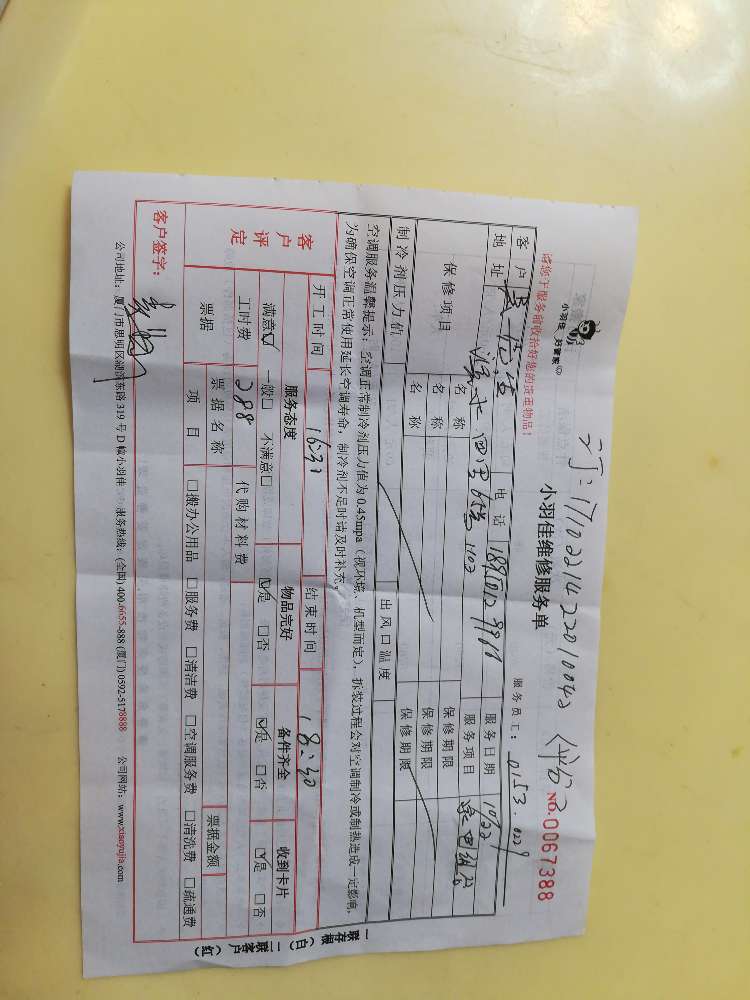 小羽佳 好管家
小羽佳维修服务单
NO. 0067388
请您于服务前收拾好您的贵重物品！
服务员工：0153.
客户 电话 服务日期 10/22
地址 1102 服务项目
保修项目 名称 保修期限
名称 保修期限
名称 保修期限
制冷剂压力值 出风口温度
空调服务温馨提示：空调正常制冷剂压力值为0.45mpa（视环境、机型而定），拆装过程会对空调制冷或制热造成一定影响，
为确保空调正常使用延长空调寿命，制冷剂不足时请及时补充。
开工时间 16:30 结束时间 18:30
客户评定 服务态度 物品完好 备件齐全 收到卡片
满意☑ 一般□ 不满意□ ☑是 □否 ☑是 □否 ☑是 □否
工时费 288 代购材料费
票据 票据名称 票据金额
项目 □搬办公用品 □服务费 □清洁费 □空调服务费 □清洗费 □疏通费
客户签字：
公司地址：厦门市思明区湖滨东路319号D幢小羽佳 服务热线：(全国) 400-6655-888 (厦门) 0592-5178888 公司网站：www.xiaoyujia.com
一联存根（白） 二联客户（红）